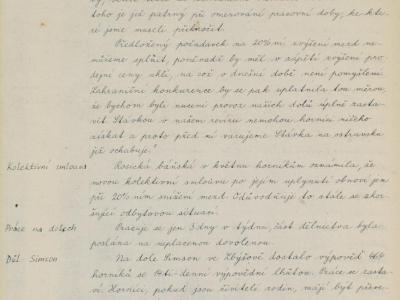 toho je již patrný při omezování pracovní doby, ke kte-
ré jsme museli přikročit.
Předložený požadavek na 20% ní zvýšení mezd ne-
můžeme splnit, poněvadž by měl v zápětí zvýšení pro-
dejní ceny uhlí, na což v dnešní době není pomyšlení.
Zahraniční konkurence by se pak uplatnila tou měrou,
že bychom byli nuceni provoz našich dolů úplně zasta-
vit. Stávkou v našem revíru nemohou horníci ničeho
získat a proto před ní varujeme. Stávka na ostravsku
již ochabuje."
Kolektivní smlouva Rosická báňská v květnu horníkům oznámila, že
novou kolektivní smlouvu po jejím uplynutí obnoví jen
při 20% ním snížení mezd. Odůvodňuje to stále se zhor-
šující odbytovou situací.
Práce na dolech Pracuje se jen 3 dny v týdnu, část dělnictva byla
poslána na neplacenou dovolenou.
Důl Simson Na dole Simson ve Zbýšově dostalo výpověď 464
horníků se 14ti-denní výpovědní lhůtou. Práce se zasta-
ví. Horníci, pokud jsou živiteli rodin, mají být